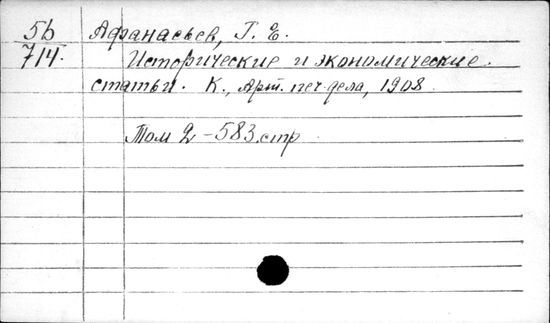 5b Афанасьев, Г. Е.
714. Исторические и экономические
статьи. К., Арт. печ. дела, 1908
Том 2 - 583 стр